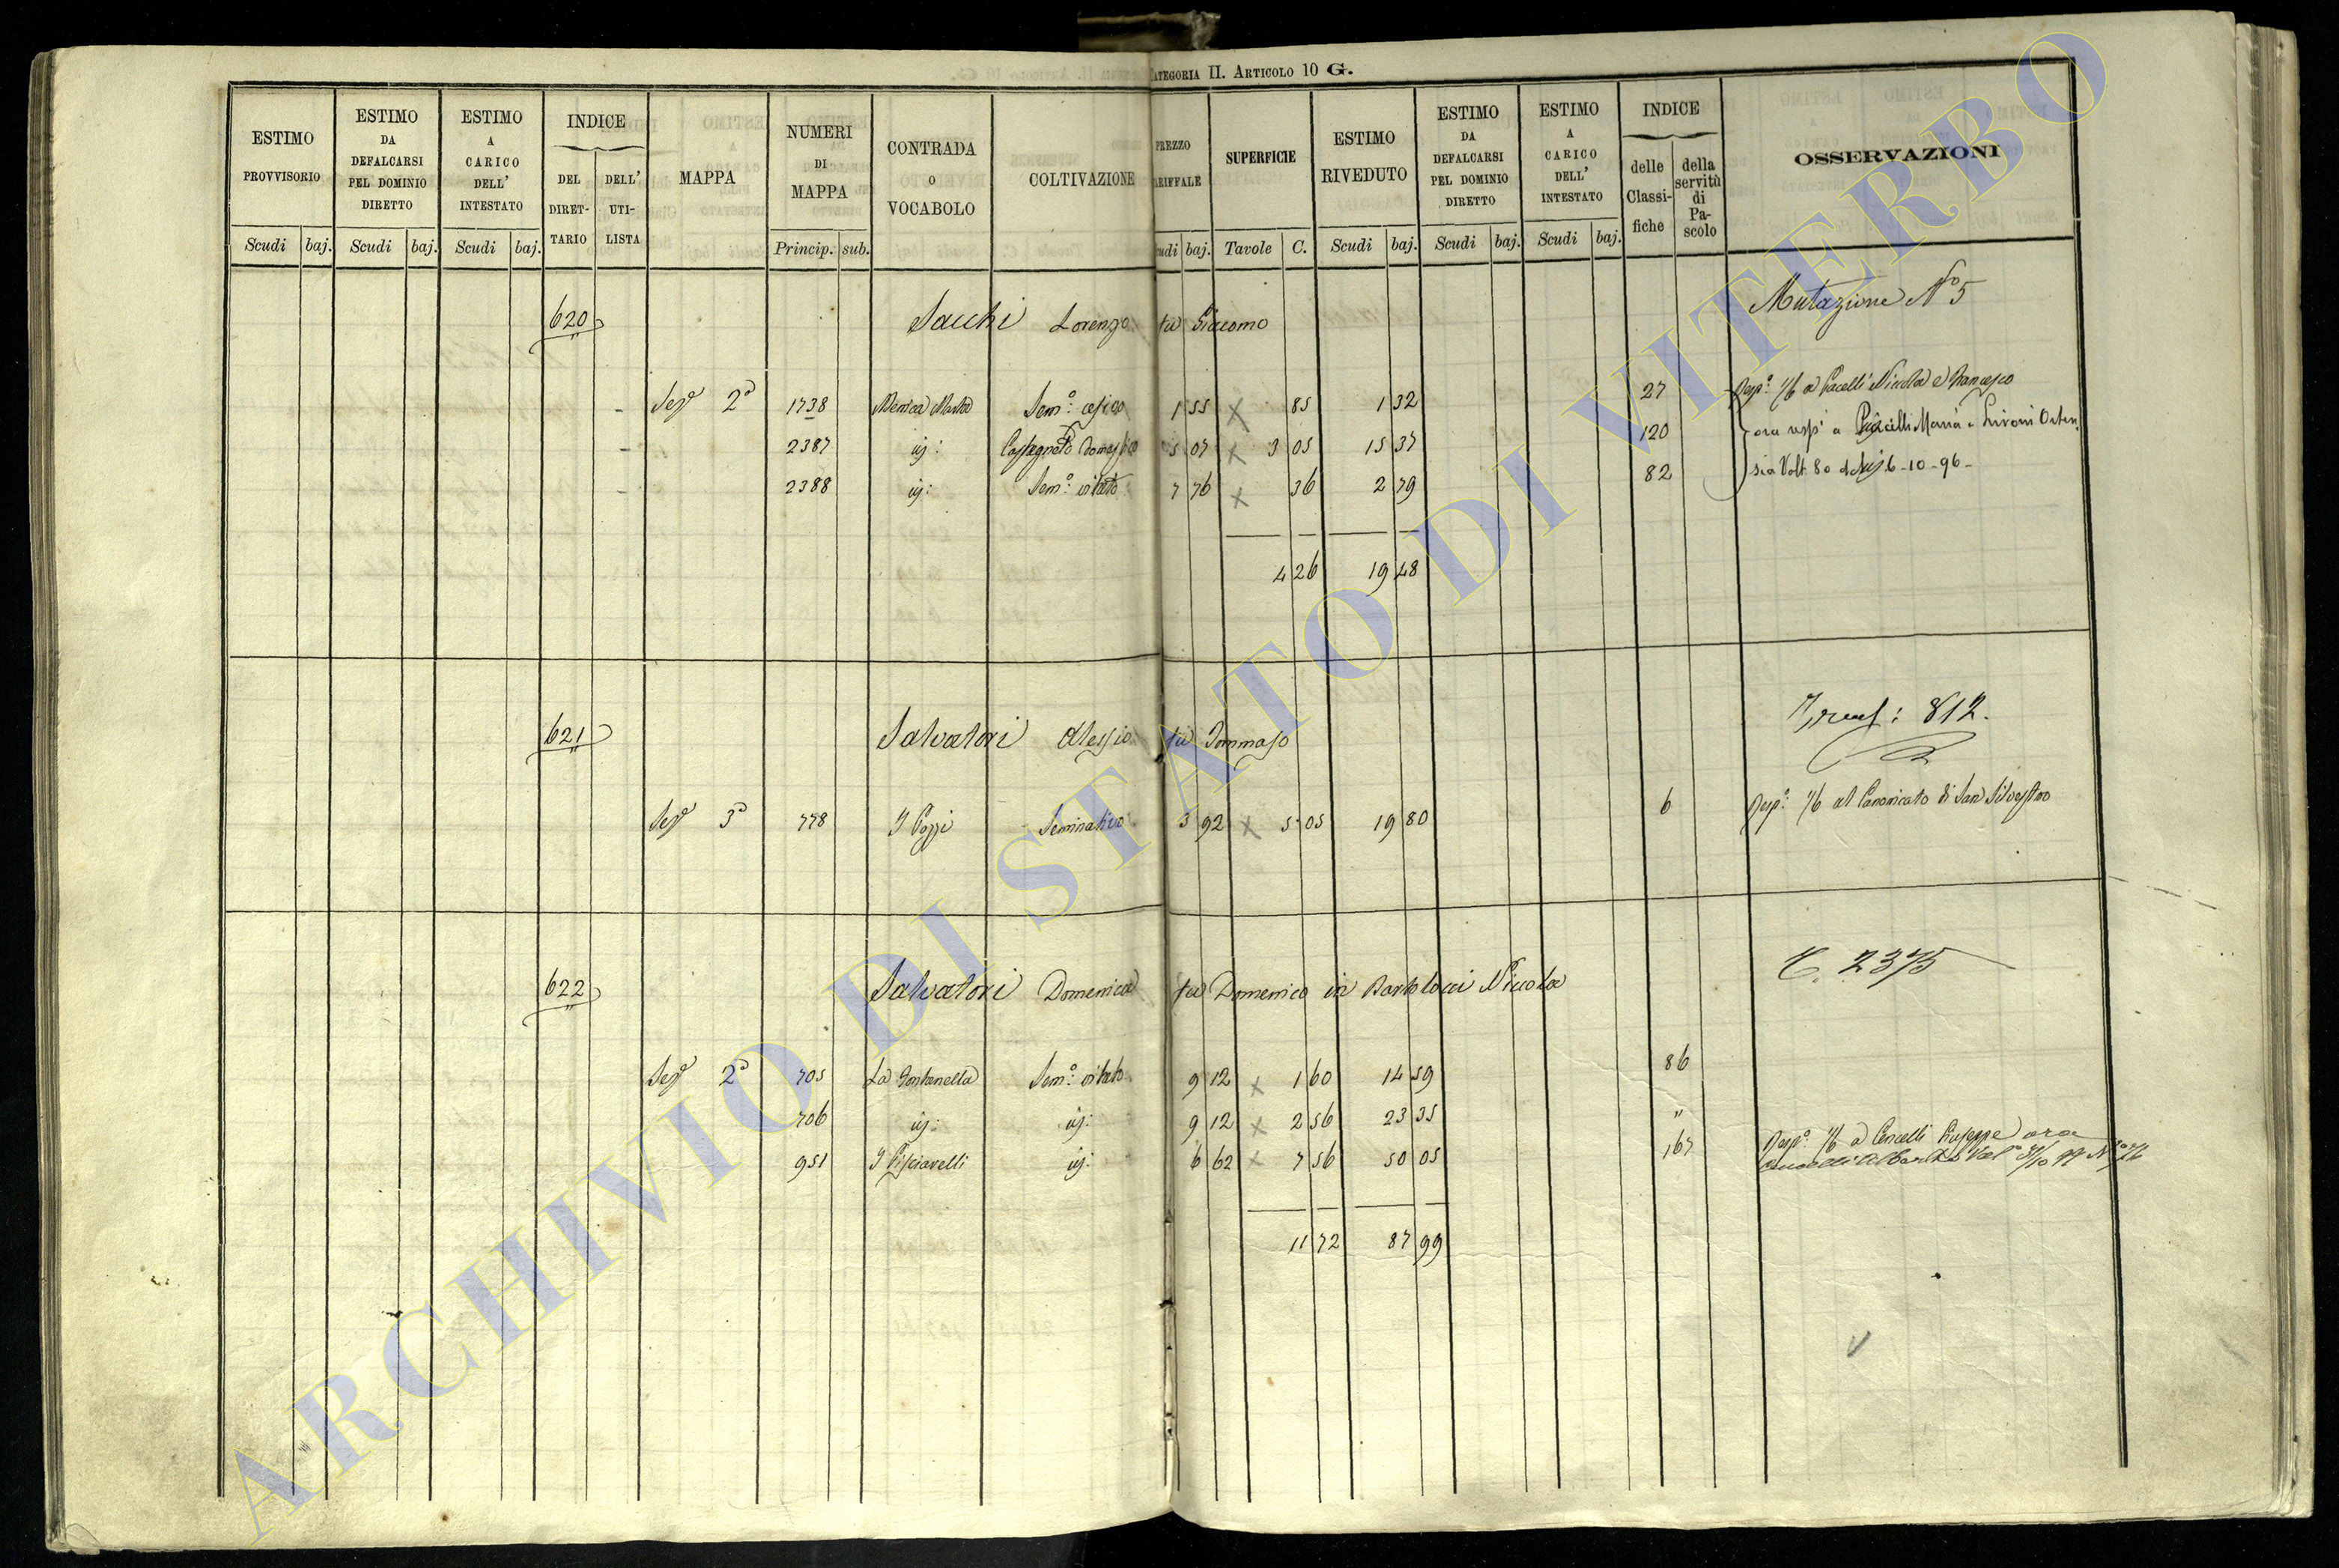 CATEGORIA II. ARTICOLO 10 G.
ESTIMO PROVVISORIO Scudi baj.
ESTIMO DA DEFALCARSI PEL DOMINIO DIRETTO Scudi baj.
ESTIMO A CARICO DELL' INTESTATO Scudi baj.
INDICE DEL DIRET-TARIO DELL' UTI-LISTA
MAPPA
NUMERI DI MAPPA Princip. sub.
CONTRADA O VOCABOLO
COLTIVAZIONE
PREZZO TARIFFALE Scudi baj.
SUPERFICIE Tavole C.
ESTIMO RIVEDUTO Scudi baj.
ESTIMO DA DEFALCARSI PEL DOMINIO DIRETTO Scudi baj.
ESTIMO A CARICO DELL' INTESTATO Scudi baj.
INDICE delle Classi-fiche della servitù di Pa-scolo
OSSERVAZIONI
620 Sacchi Lorenzo fu Giacomo Mutazione N° 5
Sezᵉ 2ᵃ 1738 Semᵒ: 1 55 X 85 1 32 27 Respᵒ: 1/6 a Pacelli Niccola e Francesco
2387 id: 5 07 X 3 05 15 37 120 ora respⁱ a Maria e Ortensia
2388 id: Semᵒ: vitato 7 76 X 36 2 79 82 Volt. 80 6-10-96-
4 26 19 48
621 Salvatori Alessio fu Tommaso 812.
Sezᵉ 3ᵃ 778 I Pozzi Seminativo 3 92 X 5 05 19 80 6 Respᵒ: 1/6 al Canonicato di San Silvestro
622 Salvatori Domenica fu Domenico in Bartolocci Niccola 2375
Sezᵉ 2ᵃ 705 La Fontanella Semᵒ: vitato 9 12 X 1 60 14 59 86
706 id: id: 9 12 X 2 56 23 35 "
951 I Pisciarelli id: 6 62 X 7 56 50 05 167 Respᵒ: 1/6 a Cencelli Giuseppe ora
Cencelli Alberto
11 72 87 99
ARCHIVIO DI STATO DI VITERBO